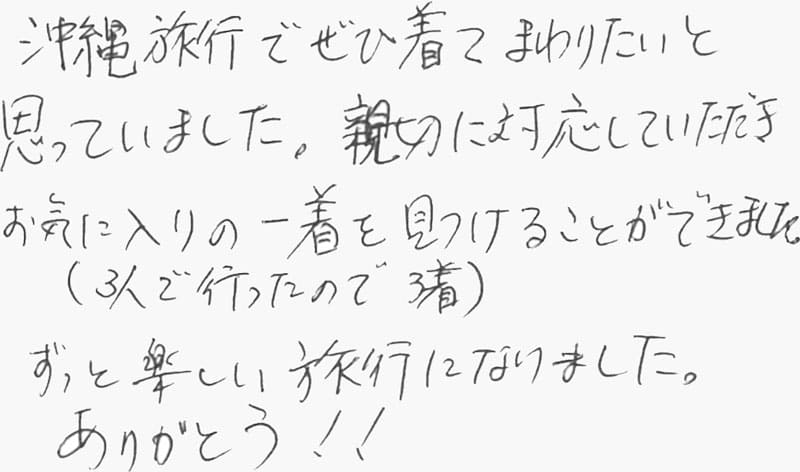 沖縄旅行でぜひ着てまわりたいと
思っていました。親切に対応していただき
お気に入りの一着を見つけることができました。
(3人で行ったので3着)
ずっと楽しい旅行になりました。
ありがとう!!